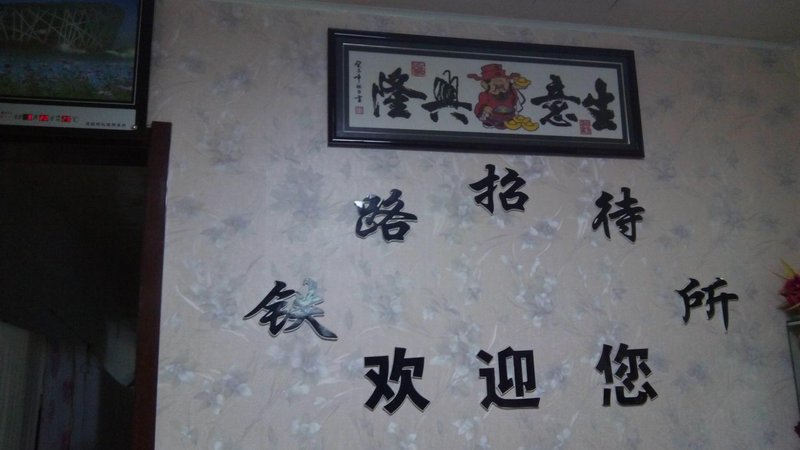 隆興意生
铁路招待所
欢迎您